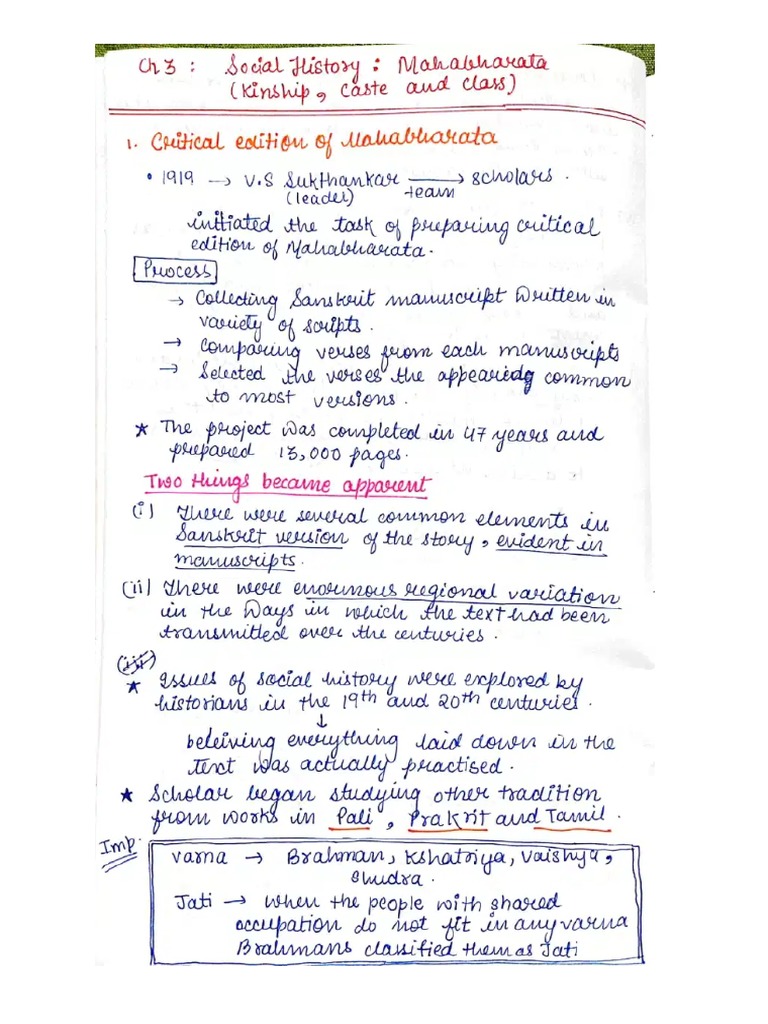 Ch 3 : Social History : Mahabharata
(Kinship, Caste and Class)
1. Critical edition of Mahabharata
• 1919 → V.S Sukthankar → scholars.
(leader) team
initiated the task of preparing critical
edition of Mahabharata.
Process
→ Collecting Sanskrit manuscript written in
variety of scripts.
→ Comparing verses from each manuscripts
→ Selected the verses the appearing common
to most versions.
★ The project was completed in 47 years and
prepared 13,000 pages.
Two things became apparent
(i) There were several common elements in
Sanskrit version of the story, evident in
manuscripts.
(ii) There were enormous regional variation
in the ways in which the text had been
transmitted over the centuries.
(iii)
★ Issues of social history were explored by
historians in the 19th and 20th centuries.
↓
beleiving everything laid down in the
text was actually practised.
★ Scholar began studying other tradition
from works in Pali, Prakrit and Tamil.
Imp.
Varna → Brahman, Kshatriya, Vaishya,
Shudra.
Jati → when the people with shared
occupation do not fit in any varna
Brahmans classified them as Jati